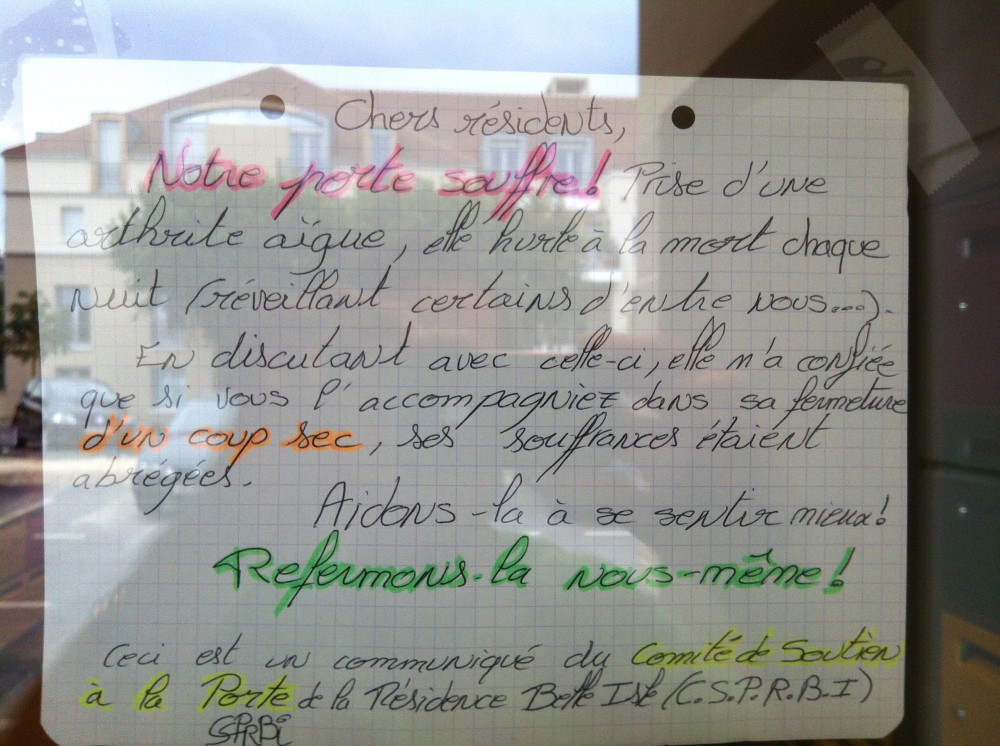 Chers résidents,
Notre porte souffre! Prise d'une
arthrite aïgue, elle hurle à la mort chaque
nuit (réveillant certains d'entre nous...).
En discutant avec celle-ci, elle m'a confiée
que si vous l'accompagniez dans sa fermeture
d'un coup sec, ses souffrances étaient
abrégées.
Aidons-la à se sentir mieux!
Refermons-la nous-même!
Ceci est un communiqué du Comité de Soutien
à la Porte de la Résidence Belle Isle (C.S.P.R.B.I)
CSPRBI